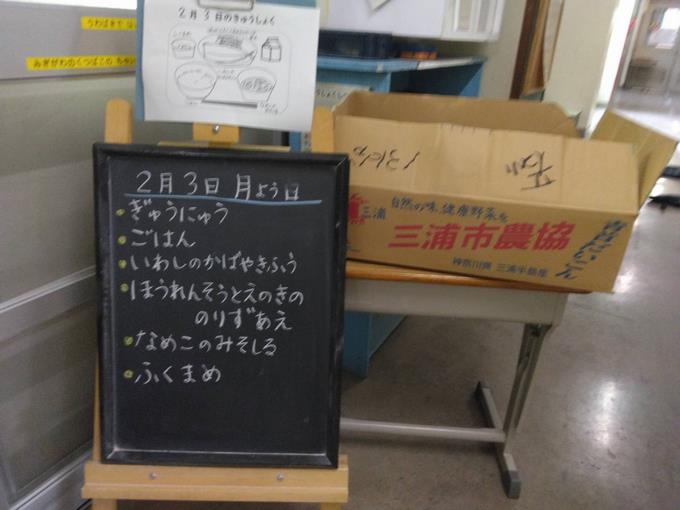 うわばきで
みぎがわのくつばこの
2月3日のきゅうしょく
2月3日月よう日
ぎゅうにゅう
ごはん
いわしのかばやきふう
ほうれんそうとえのきの
のりずあえ
なめこのみそしる
ふくまめ
三浦
自然の味、健康野菜を
三浦市農協
神奈川県 三浦半島産